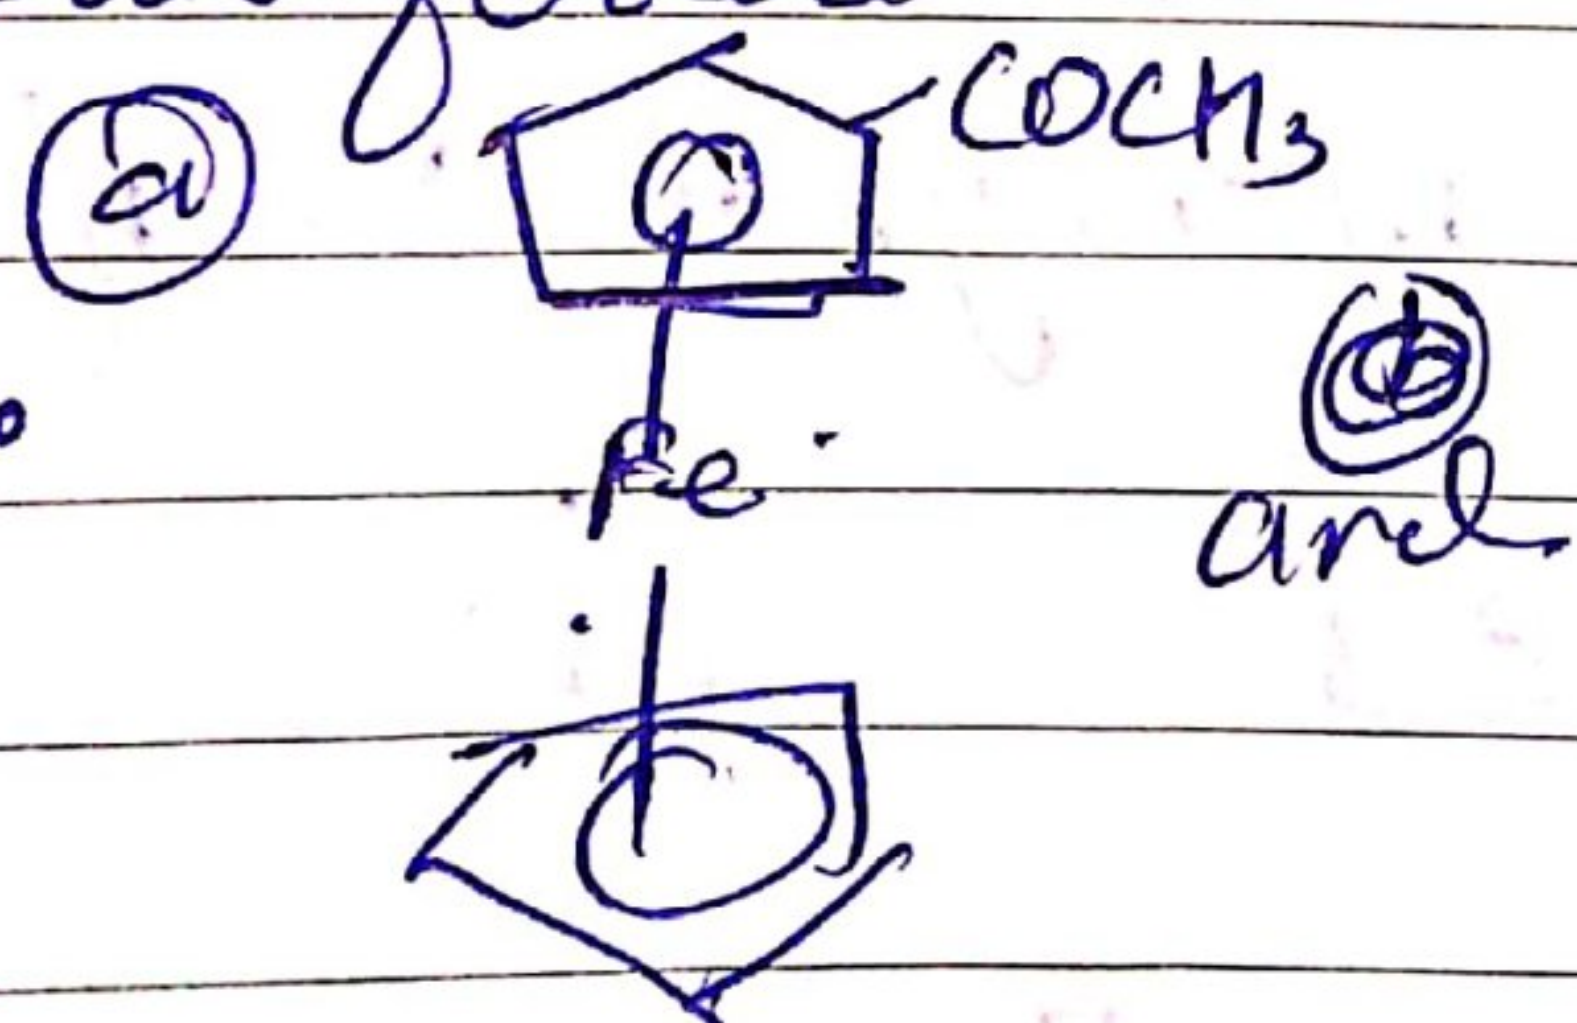 (a)
COCH3
(b)
Fe
and